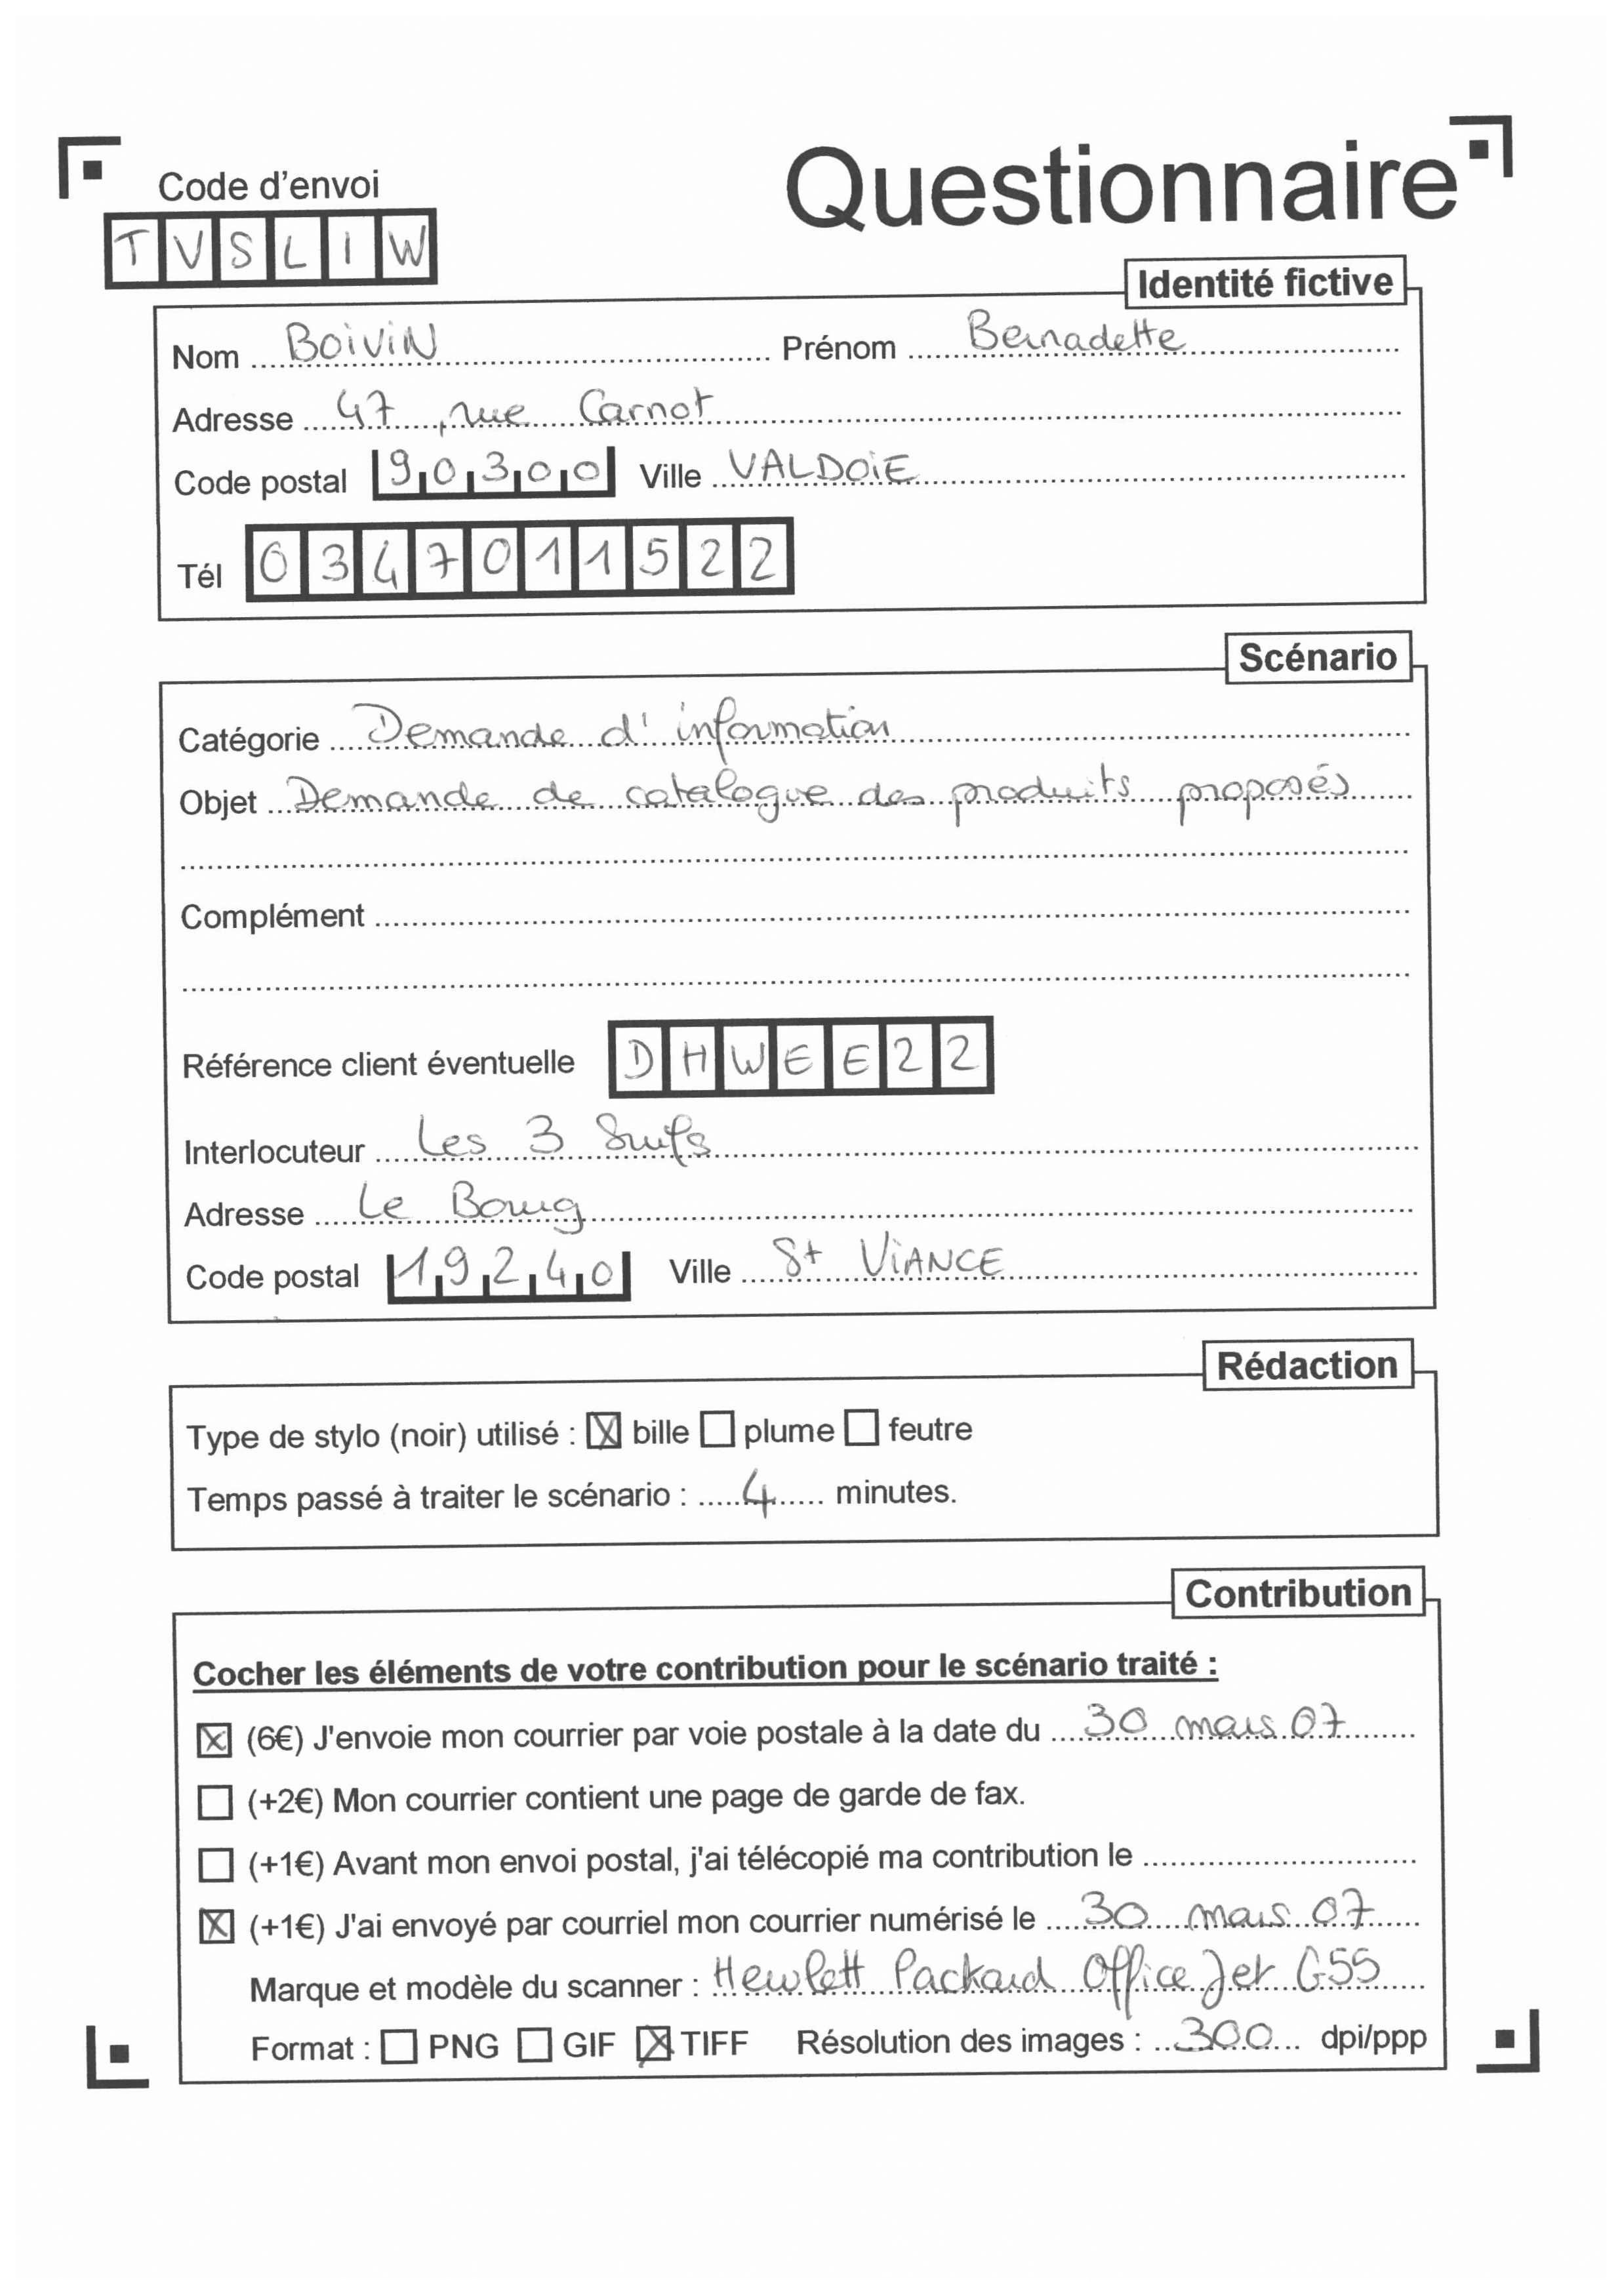 Questionnaire
Code d'envoi
TVSLIW
Identité fictive
Nom BOiViN Prénom Bernadette
Adresse 47, rue Carnot
Code postal 90300 Ville VALDOiE
Tél 0347011522
Scénario
Catégorie Demande d'information
Objet Demande de catalogue des produits proposés
Complément
Référence client éventuelle DHWEE22
Interlocuteur Les 3 Suifs
Adresse Le Bourg
Code postal 19240 Ville St ViANCE
Rédaction
Type de stylo (noir) utilisé : bille plume feutre
Temps passé à traiter le scénario : 4 minutes.
Contribution
Cocher les éléments de votre contribution pour le scénario traité :
(6€) J'envoie mon courrier par voie postale à la date du 30 mars 07
(+2€) Mon courrier contient une page de garde de fax.
(+1€) Avant mon envoi postal, j'ai télécopié ma contribution le
(+1€) J'ai envoyé par courriel mon courrier numérisé le 30 mars 07
Marque et modèle du scanner : Hewlett Packard Office Jet G55
Format : PNG GIF TIFF Résolution des images : 300 dpi/ppp